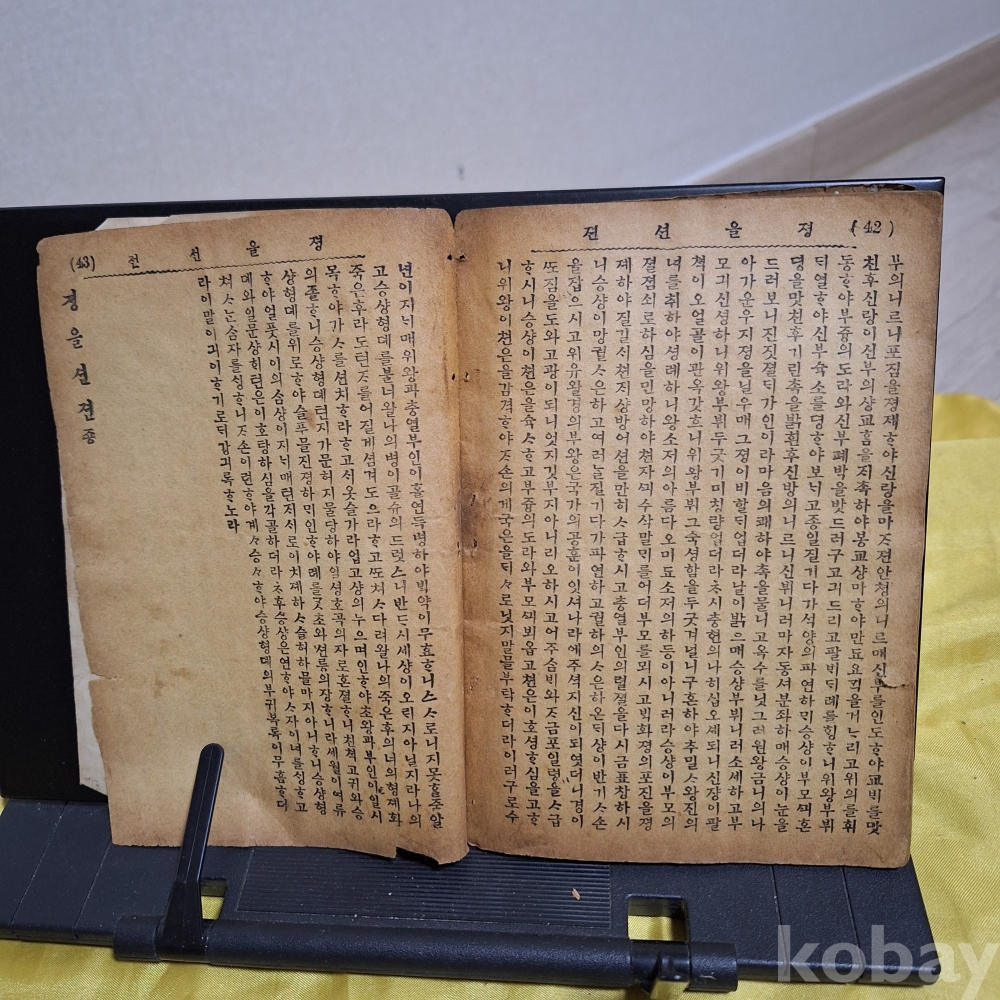 (42) 졍 을 션 젼
부의니르니포진을졍졔ᄒᆞ야신랑을마ᄌᆞ젼안쳥의니르매신부를인도ᄒᆞ야교ᄇᆡ를맛
친후신랑이신부의샹교홈을ᄌᆡ촉하야봉교샹마ᄒᆞ야만됴요ᄀᆡᆨ을거ᄂᆞ리고위의를휘
동ᄒᆞ야부즁의도라와신부폐ᄇᆡᆨ을밧드러구고긔드리고팔ᄇᆡᄃᆡ례를ᄒᆡᆼᄒᆞ니위왕부뷔
ᄃᆡ열ᄒᆞ야신부슉소를뎡ᄒᆞ야보ᄂᆡ고종일질기다가석양의파연하ᄆᆡ승샹이부모ᄭᅴ혼
뎡을맛친후기린촉을밝힌후신방의니르니신뷔니러마자동셔분좌하매승샹이눈을
드러보니진짓졀ᄃᆡ가인이라마음의쾌하야촉을물니고옥수를닛그러원왕금니의나
아가운우지졍을닐우매그졍이비할ᄃᆡ업더라날이밝으매승샹부뷔니러소셰하고부
모긔신셩하니위왕부뷔두굿기미칭량업더라ᄎᆞ시츙현의나히십오셰되니신쟝이팔
쳑이오얼골이관옥갓흐니위왕부뷔그슉셩함을두굿겨널니구혼하야추밀ᄉᆞ왕진의
녀를취하야셩례하니왕소져의아름다오미됴소져의하등이아니러라승샹이부모의
졀졈쇠로하심을민망하야쳔자ᄭᅴ수삭말ᄆᆡ를어더부모를뫼시고ᄇᆡᆨ화졍의포진을졍
졔하야질길ᄉᆡ쳔지샹방어션을만히ᄉᆞ급ᄒᆞ시고츙열부인의렬졀을다시금표창하시
니승샹이망궐ᄉᆞ은하고여러날질기다가파연하고궐하의ᄉᆞ은하온ᄃᆡ샹이반기ᄉᆞ손
을잡으시고위유왈경의부왕은국가의공훈이잇셔나라에주셕지신이되엿더니경이
ᄯᅩ짐을도와고광이되니엇지깃부지아니리오하시고어주삼ᄇᆡ와ᄌᆞ금포일령을ᄉᆞ급
ᄒᆞ시니승샹이쳔은을슉ᄉᆞᄒᆞ고부즁의도라와부모ᄭᅴ뵈옵고쳔은이호셩ᄒᆞ심을고ᄒᆞ
니위왕이쳔은을감격ᄒᆞ야ᄌᆞ손의게국은을ᄃᆡᄉᆞ로닛지말믈부탁ᄒᆞ더라이러구로수
(43) 졍 을 션 젼
년이지ᄂᆡ매위왕과츙열부인이홀연득병하야ᄇᆡᆨ약이무효ᄒᆞ니스ᄉᆞ로니지못ᄒᆞᆯ줄알
고승샹형뎨를불너왈나의병이골슈의드럿스니반ᄃᆞ시셰샹이오ᄅᆡ지아닐지라나의
죽은후라도련ᄌᆞ를어질게셤겨도으라ᄒᆞ고ᄯᅩ쳐ᄉᆞ다려왈나의죽은후의너의형졔화
목ᄒᆞ야가ᄉᆞ를션치ᄒᆞ라ᄒᆞ고ᄉᆡ옷슬가라입고상의누으며인ᄒᆞ야초왕과부인이일시
의졸ᄒᆞ니승샹형뎨련지가문허지믈당하야일셩호곡의자로혼졀ᄒᆞ니쳔쳑고귀와승
샹형뎨를위로ᄒᆞ야슬푸믈진졍하ᄆᆡ인ᄒᆞ야례를ᄀᆞᆺ초와션릉의장ᄒᆞ니라셰월이여류
ᄒᆞ야얼풋시이의삼샹이지ᄂᆡ매련지서로이치졔하ᄉᆞ슬허하믈마지아니ᄒᆞ니승샹형
뎨와일문상하련은이호탕하심을각골하더라ᄎᆞ후승샹은연ᄒᆞ야ᄉᆞ자이녀를ᄉᆡᆼᄒᆞ고
쳐ᄉᆞᄂᆞᆫ삼자를ᄉᆡᆼᄒᆞ니ᄌᆞ손이련ᄒᆞ야계계승승ᄒᆞ야승샹형뎨의부귀복록이무흠ᄒᆞ더
라이말이긔이ᄒᆞ기로ᄃᆡ강긔록ᄒᆞ노라
졍을션젼 종
kobay